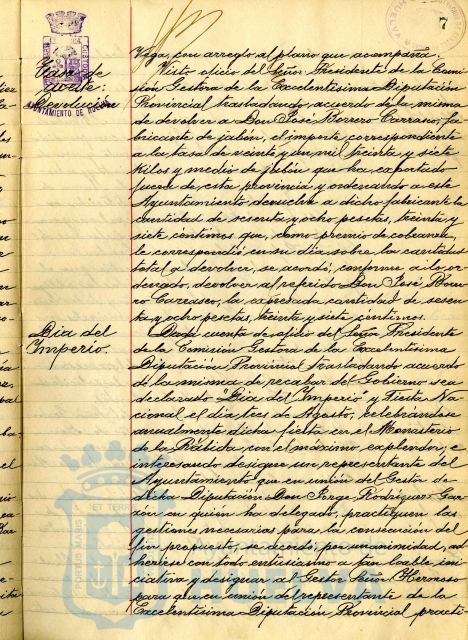 7
Vega, con arreglo al plano que acompaña.
Tasa de
aceite:
Devolución
AYUNTAMIENTO DE HUELVA
Visto oficio del Señor Presidente de la Comi-
sión Gestora de la Excelentísima Diputación
Provincial trasladando acuerdo de la misma
de devolver a Don José Borrero Carrasco, fa-
bricante de jabón, el importe correspondiente
a la tasa de veinte y un mil treinta y siete
kilos y medio de jabón que ha exportado
fuera de esta provincia y ordenando a este
Ayuntamiento devuelva a dicho fabricante la
cantidad de sesenta y ocho pesetas, treinta y
siete céntimos que, como premio de cobranza,
le correspondió en su día sobre la cantidad
total a devolver, se acordó, conforme a lo or-
denado, devolver al referido Don José Borre-
ro Carrasco, la expresada cantidad de sesen-
ta y ocho pesetas, treinta y siete céntimos.
Dia del
Imperio.
Dada cuenta de oficio del Señor Presidente
de la Comisión Gestora de la Excelentísima
Diputación Provincial trasladando acuerdo
de la misma de recabar del Gobierno sea
declarado "Dia del Imperio" y Fiesta Na-
cional el dia tres de Agosto, celebrándose
anualmente dicha fiesta en el Monasterio
de la Rábida con el máximo explendor, e
interesando designe un representante del
Ayuntamiento que en unión del Gestor de
dicha Diputación Don Jorge Rodríguez Gar-
zón en quién ha delegado, practiquen las
gestiones necesarias para la consecución del
fin propuesto, se acordó por unanimidad, ad-
herirse con todo entusiasmo a tan loable ini-
ciativa y designar al Gestor Señor Hermoso
para que en unión del representante de la
Excelentísima Diputación Provincial practi-
PORTUS MARIS ET TERRAE